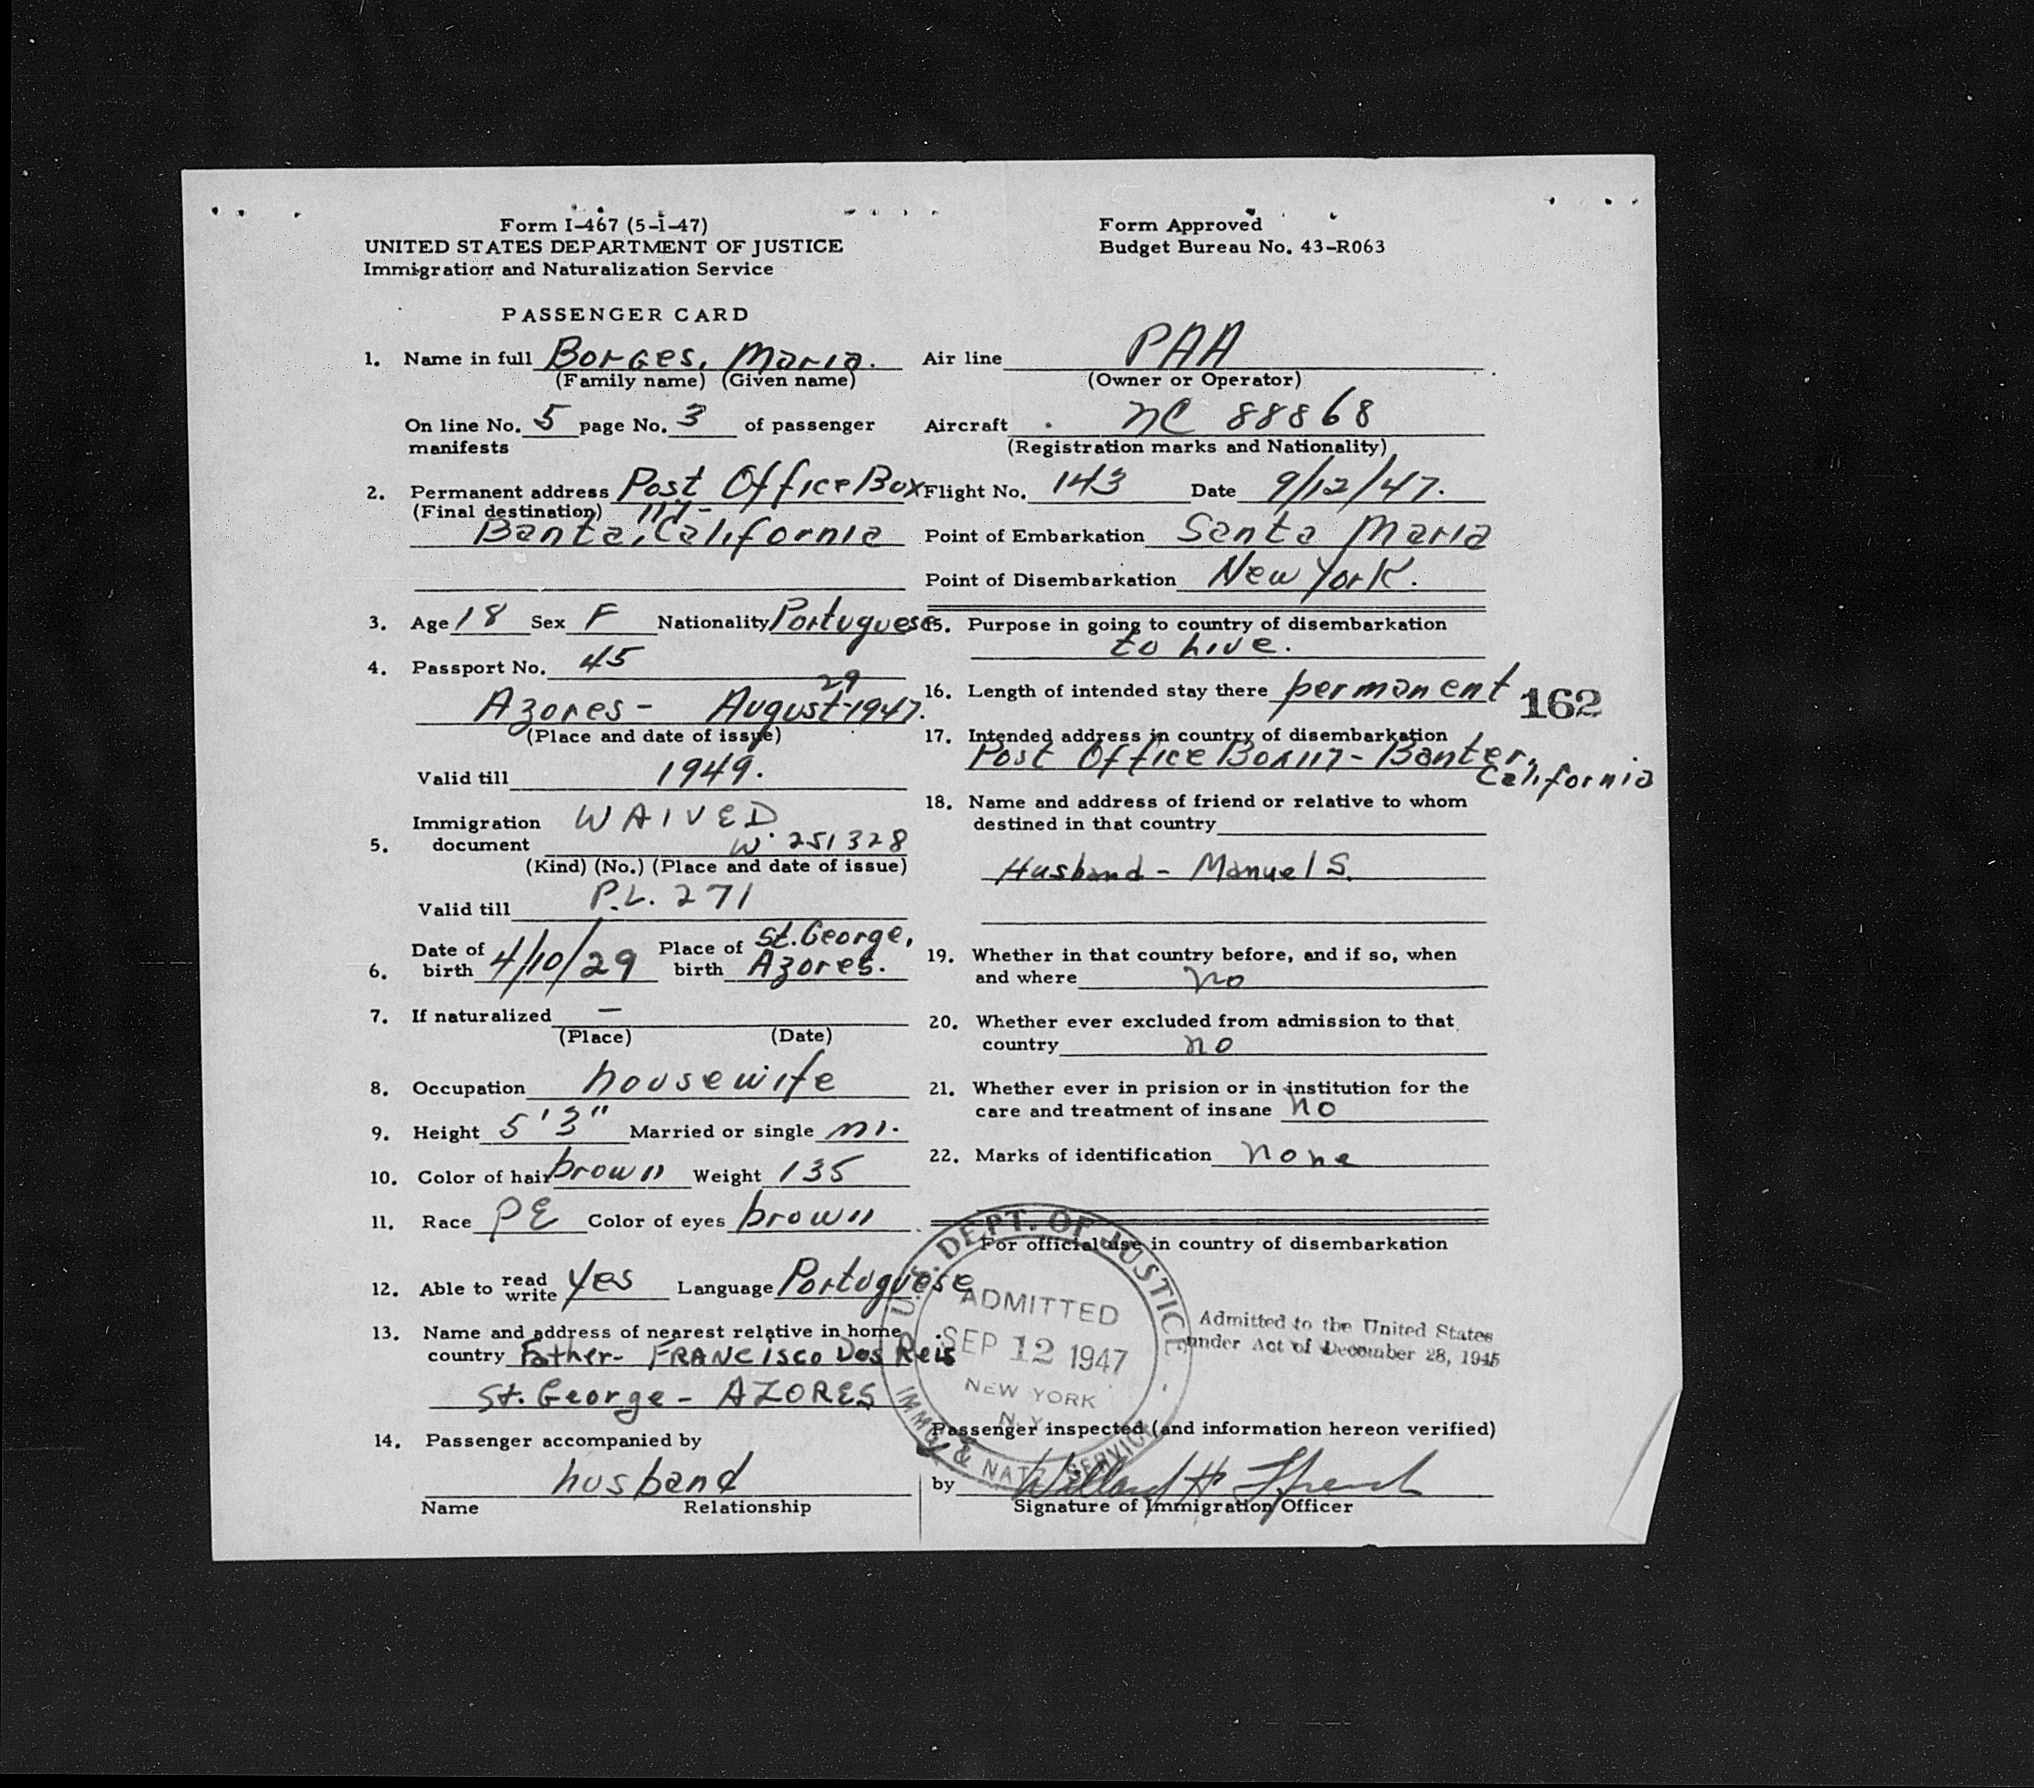 Form I-467 (5-1-47)
UNITED STATES DEPARTMENT OF JUSTICE
Immigration and Naturalization Service
Form Approved
Budget Bureau No. 43-R063
PASSENGER CARD
1. Name in full Borges, Maria.
(Family name) (Given name)
On line No. 5 page No. 3 of passenger
manifests
2. Permanent address Post Office Box
(Final destination) 117-
Banta, California
3. Age 18 Sex F Nationality Portuguese
4. Passport No. 45
29
Azores - August-1947.
(Place and date of issue)
Valid till 1949.
Immigration WAIVED
5. document W. 251328
(Kind) (No.) (Place and date of issue)
Valid till P.L. 271
Date of Place of St. George,
6. birth 4/10/29 birth Azores.
7. If naturalized —
(Place) (Date)
8. Occupation housewife
9. Height 5'3" Married or single m.
10. Color of hair brown Weight 135
11. Race PE Color of eyes brown
12. Able to read write yes Language Portuguese
13. Name and address of nearest relative in home
country Father- FRANCISCO Dos Reis
St. George - AZORES
14. Passenger accompanied by
husband
Name Relationship
Air line PAA
(Owner or Operator)
Aircraft NC 88868
(Registration marks and Nationality)
Flight No. 143 Date 9/12/47.
Point of Embarkation Santa Maria
Point of Disembarkation New York.
15. Purpose in going to country of disembarkation
to live.
16. Length of intended stay there permanent
162
17. Intended address in country of disembarkation
Post Office Box 117- Banter,
California
18. Name and address of friend or relative to whom
destined in that country
Husband - Manuel S.
19. Whether in that country before, and if so, when
and where no
20. Whether ever excluded from admission to that
country no
21. Whether ever in prision or in institution for the
care and treatment of insane no
22. Marks of identification none
For official use in country of disembarkation
U.S. DEPT. OF JUSTICE
ADMITTED
SEP 12 1947
NEW YORK
N.Y.
IMMG. & NATZ. SERVICE
Admitted to the United States
under Act of December 28, 1945
Passenger inspected (and information hereon verified)
by Willard H.
Signature of Immigration Officer